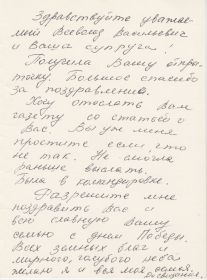 Здравствуйте уважае-
мый Всеволод Васильевич
и Ваша супруга!
Получила Вашу откры-
точку. Большое спасибо
за поздравление.
Хочу отослать Вам
газету со статьей о
Вас. Вы уж меня
простите если что
не так. Не смогла
раньше выслать.
Была в командировке.
Разрешите мне
поздравить Вас и
всю славную Вашу
семью с днем Победы.
Всех земных благ и
мирного, голубого неба
желаю я и вся моя семья.
До свидания.